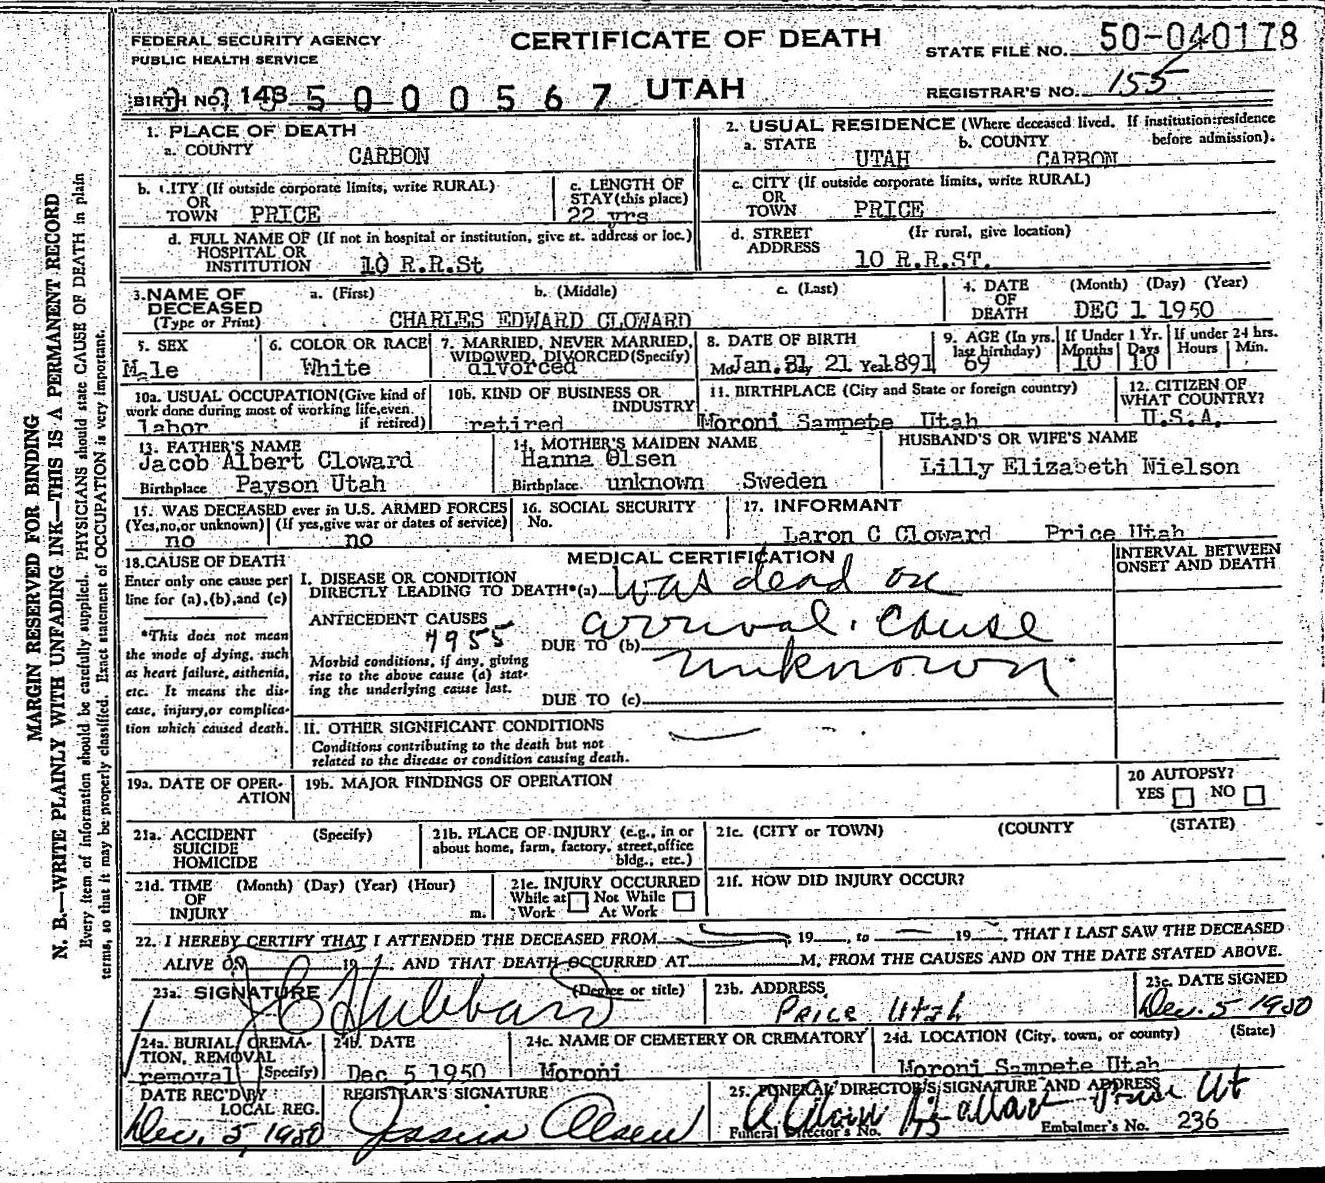 FEDERAL SECURITY AGENCY
PUBLIC HEALTH SERVICE
CERTIFICATE OF DEATH
STATE FILE NO. 50-040178
BIRTH NO. 143 5 0 0 0 5 6 7
UTAH
REGISTRAR'S NO. 155
1. PLACE OF DEATH
a. COUNTY CARBON
2. USUAL RESIDENCE (Where deceased lived. If institution:residence before admission).
a. STATE UTAH b. COUNTY CARBON
b. CITY (If outside corporate limits, write RURAL)
OR
TOWN PRICE
c. LENGTH OF
STAY (this place)
22 yrs
c. CITY (If outside corporate limits, write RURAL)
OR
TOWN PRICE
d. FULL NAME OF (If not in hospital or institution, give st. address or loc.)
HOSPITAL OR
INSTITUTION 10 R.R.St
d. STREET (If rural, give location)
ADDRESS 10 R.R.ST.
3. NAME OF DECEASED
(Type or Print)
a. (First) b. (Middle) c. (Last)
CHARLES EDWARD CLOWARD
4. DATE OF DEATH (Month) (Day) (Year)
DEC 1 1950
5. SEX
Male
6. COLOR OR RACE
White
7. MARRIED, NEVER MARRIED, WIDOWED, DIVORCED (Specify)
divorced
8. DATE OF BIRTH
Mo Jan. Day 21 Year 1891
9. AGE (In yrs. last birthday)
69
If Under 1 Yr.
Months Days
10 10
If under 24 hrs.
Hours Min.
10a. USUAL OCCUPATION (Give kind of work done during most of working life, even if retired)
labor
10b. KIND OF BUSINESS OR INDUSTRY
retired
11. BIRTHPLACE (City and State or foreign country)
Moroni Sampete Utah
12. CITIZEN OF WHAT COUNTRY?
U.S.A.
13. FATHER'S NAME
Jacob Albert Cloward
Birthplace Payson Utah
14. MOTHER'S MAIDEN NAME
Hanna Olsen
Birthplace unknown Sweden
HUSBAND'S OR WIFE'S NAME
Lilly Elizabeth Nielson
15. WAS DECEASED ever in U.S. ARMED FORCES
(Yes,no,or unknown) (If yes,give war or dates of service)
no no
16. SOCIAL SECURITY
No.
17. INFORMANT
Laron C Cloward Price Utah
18. CAUSE OF DEATH
Enter only one cause per line for (a),(b),and (c)
*This does not mean the mode of dying, such as heart failure, asthenia, etc. It means the disease, injury,or complication which caused death.
MEDICAL CERTIFICATION
INTERVAL BETWEEN ONSET AND DEATH
I. DISEASE OR CONDITION
DIRECTLY LEADING TO DEATH*(a) Was dead on
ANTECEDENT CAUSES
7955
DUE TO (b) arrival. Cause
Morbid conditions, if any, giving rise to the above cause (a) stating the underlying cause last.
unknown.
DUE TO (c)
II. OTHER SIGNIFICANT CONDITIONS
Conditions contributing to the death but not related to the disease or condition causing death.
19a. DATE OF OPERATION
19b. MAJOR FINDINGS OF OPERATION
20 AUTOPSY?
YES NO
21a. ACCIDENT
SUICIDE
HOMICIDE
(Specify)
21b. PLACE OF INJURY (e.g., in or about home, farm, factory, street,office bldg., etc.)
21c. (CITY or TOWN) (COUNTY (STATE)
21d. TIME OF INJURY (Month) (Day) (Year) (Hour)
m.
21e. INJURY OCCURRED
While at Work Not While At Work
21f. HOW DID INJURY OCCUR?
22. I HEREBY CERTIFY THAT I ATTENDED THE DECEASED FROM 19 , to 19 , THAT I LAST SAW THE DECEASED
ALIVE ON 19 , AND THAT DEATH OCCURRED AT M, FROM THE CAUSES AND ON THE DATE STATED ABOVE.
23a. SIGNATURE (Degree or title)
J C Hubbard
23b. ADDRESS
Price Utah
23c. DATE SIGNED
Dec. 5 1950
24a. BURIAL, CREMATION, REMOVAL
removal (Specify)
24b. DATE
Dec 5 1950
24c. NAME OF CEMETERY OR CREMATORY
Moroni
24d. LOCATION (City, town, or county) (State)
Moroni Sampete Utah
DATE REC'D BY LOCAL REG.
Dec. 5, 1950
REGISTRAR'S SIGNATURE
Jessica Olsen
25. FUNERAL DIRECTOR'S SIGNATURE AND ADDRESS
Price Ut
Funeral Director's No. Embalmer's No. 236
MARGIN RESERVED FOR BINDING
N. B.—WRITE PLAINLY WITH UNFADING INK—THIS IS A PERMANENT RECORD
Every item of information should be carefully supplied. PHYSICIANS should state CAUSE OF DEATH in plain
terms, so that it may be properly classified. Exact statement of OCCUPATION is very important.